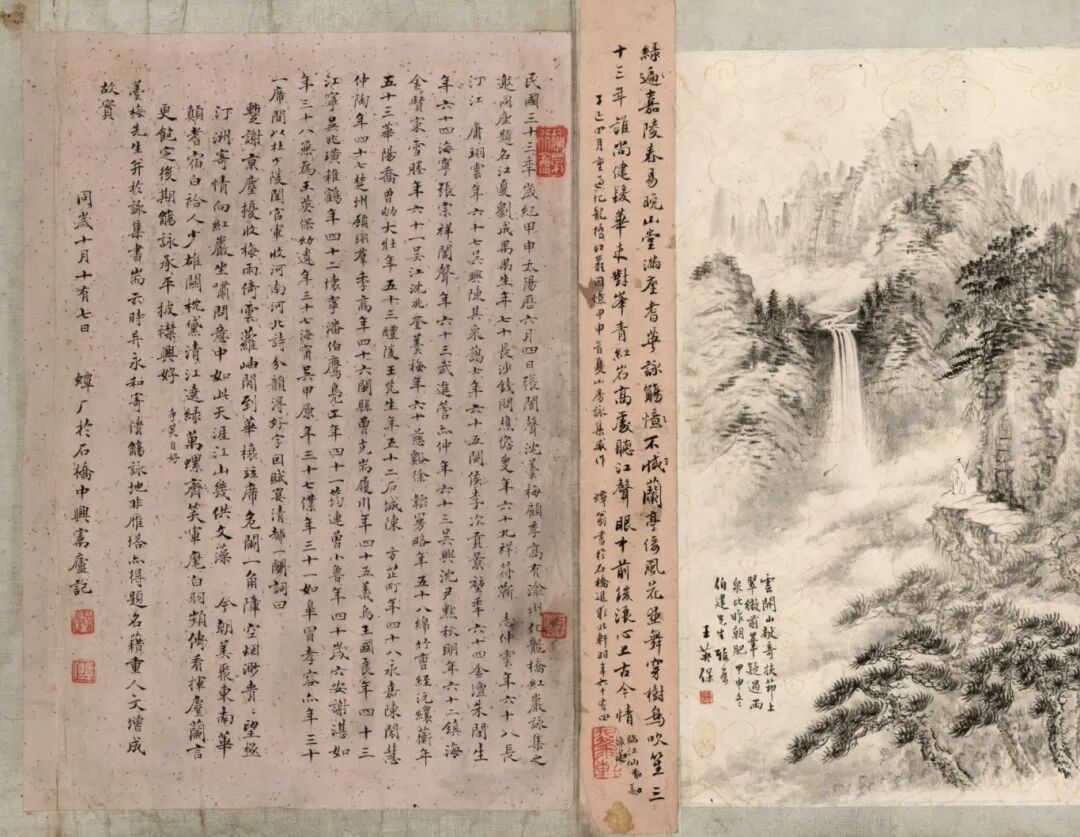 雲開山獻奇扶筇上
翠微前峯疑過雨
泉比昨朝肥 甲申冬
伯建先生雅屬
王英保
綠遍嘉陵春易晚山堂滿座耆英詠觴憶不減蘭亭風花亞舞穿樹鳥吹笙三
十三年誰尚健鬢華未對峯青紅岩高處聽江聲眼中前後浪心上古今情
丁巳四月重過化龍橋紅巖回憶甲申首夏山居詠集感作 蟫翁書於石橋退影北軒時年六十有四
臨江仙
民國三十三年歲紀甲申太陽曆六月四日張閬聲沈羹梅顧季高有渝州化龍橋紅巖詠集之
邀同座題名江夏劉成禺禺生年七十長沙錢問樵愴叟年六十九祥符靳志仲雲年六十八長
汀江庸翊雲年六十七吳興陳其采藹士年六十五閩侯李次貢景堃年六十四金澶朱閏生
年六十四海寧張宗祥閬聲年六十三武進管仲年六十三吳興沈尹默秋明年六十六鎮海
金賢寀雪塍年六十一吳江沈兆奎羹梅年六十慈谿徐韜略年五十八綿竹曹經沅纕蘅年
五十三華陽喬曾劬大壯年五十三醴陵王先生年五十二石城陳方芷町年四十八永嘉陳閎慧
仲陶年四十七楚州顧翊羣季高年四十六閩縣曹克耑履川年四十五義烏王國良年四十三
江寧吳兆璜稚鶴年四十二懷寧潘伯鷹鳧工年四十一筠連曾小魯年四十歲六安謝湛如
年三十八無為王英保幼遺年三十七海寧吳甲原年三十七僕年三十一如皋冒孝容年三十
一席間以杜少陵聞官軍收河南河北詩分韻得好字因賦宴清都一闋詞曰
暫謝京塵擾收梅雨倚雲蘿岫開到華榱竝席危闌一角障空烟渺青青望極
汀洲寄情向紅巖坐嘯問意中如此天涯江山幾供文藻 今朝美聚東南華
顛耆宿白袷人少雄關枕黛清江遠綠萬螺齊笑軍麾白羽頻傳看揮麈蘭言
更飽定後期觴詠承平披襟興好 手莫自好
羹梅先生并於詠集書耑云時異永和寄情觴詠地非雁塔亦得題名藉重人文增成
故實
同歲十月十有七日 蟫厂於石橋中興寓廬記